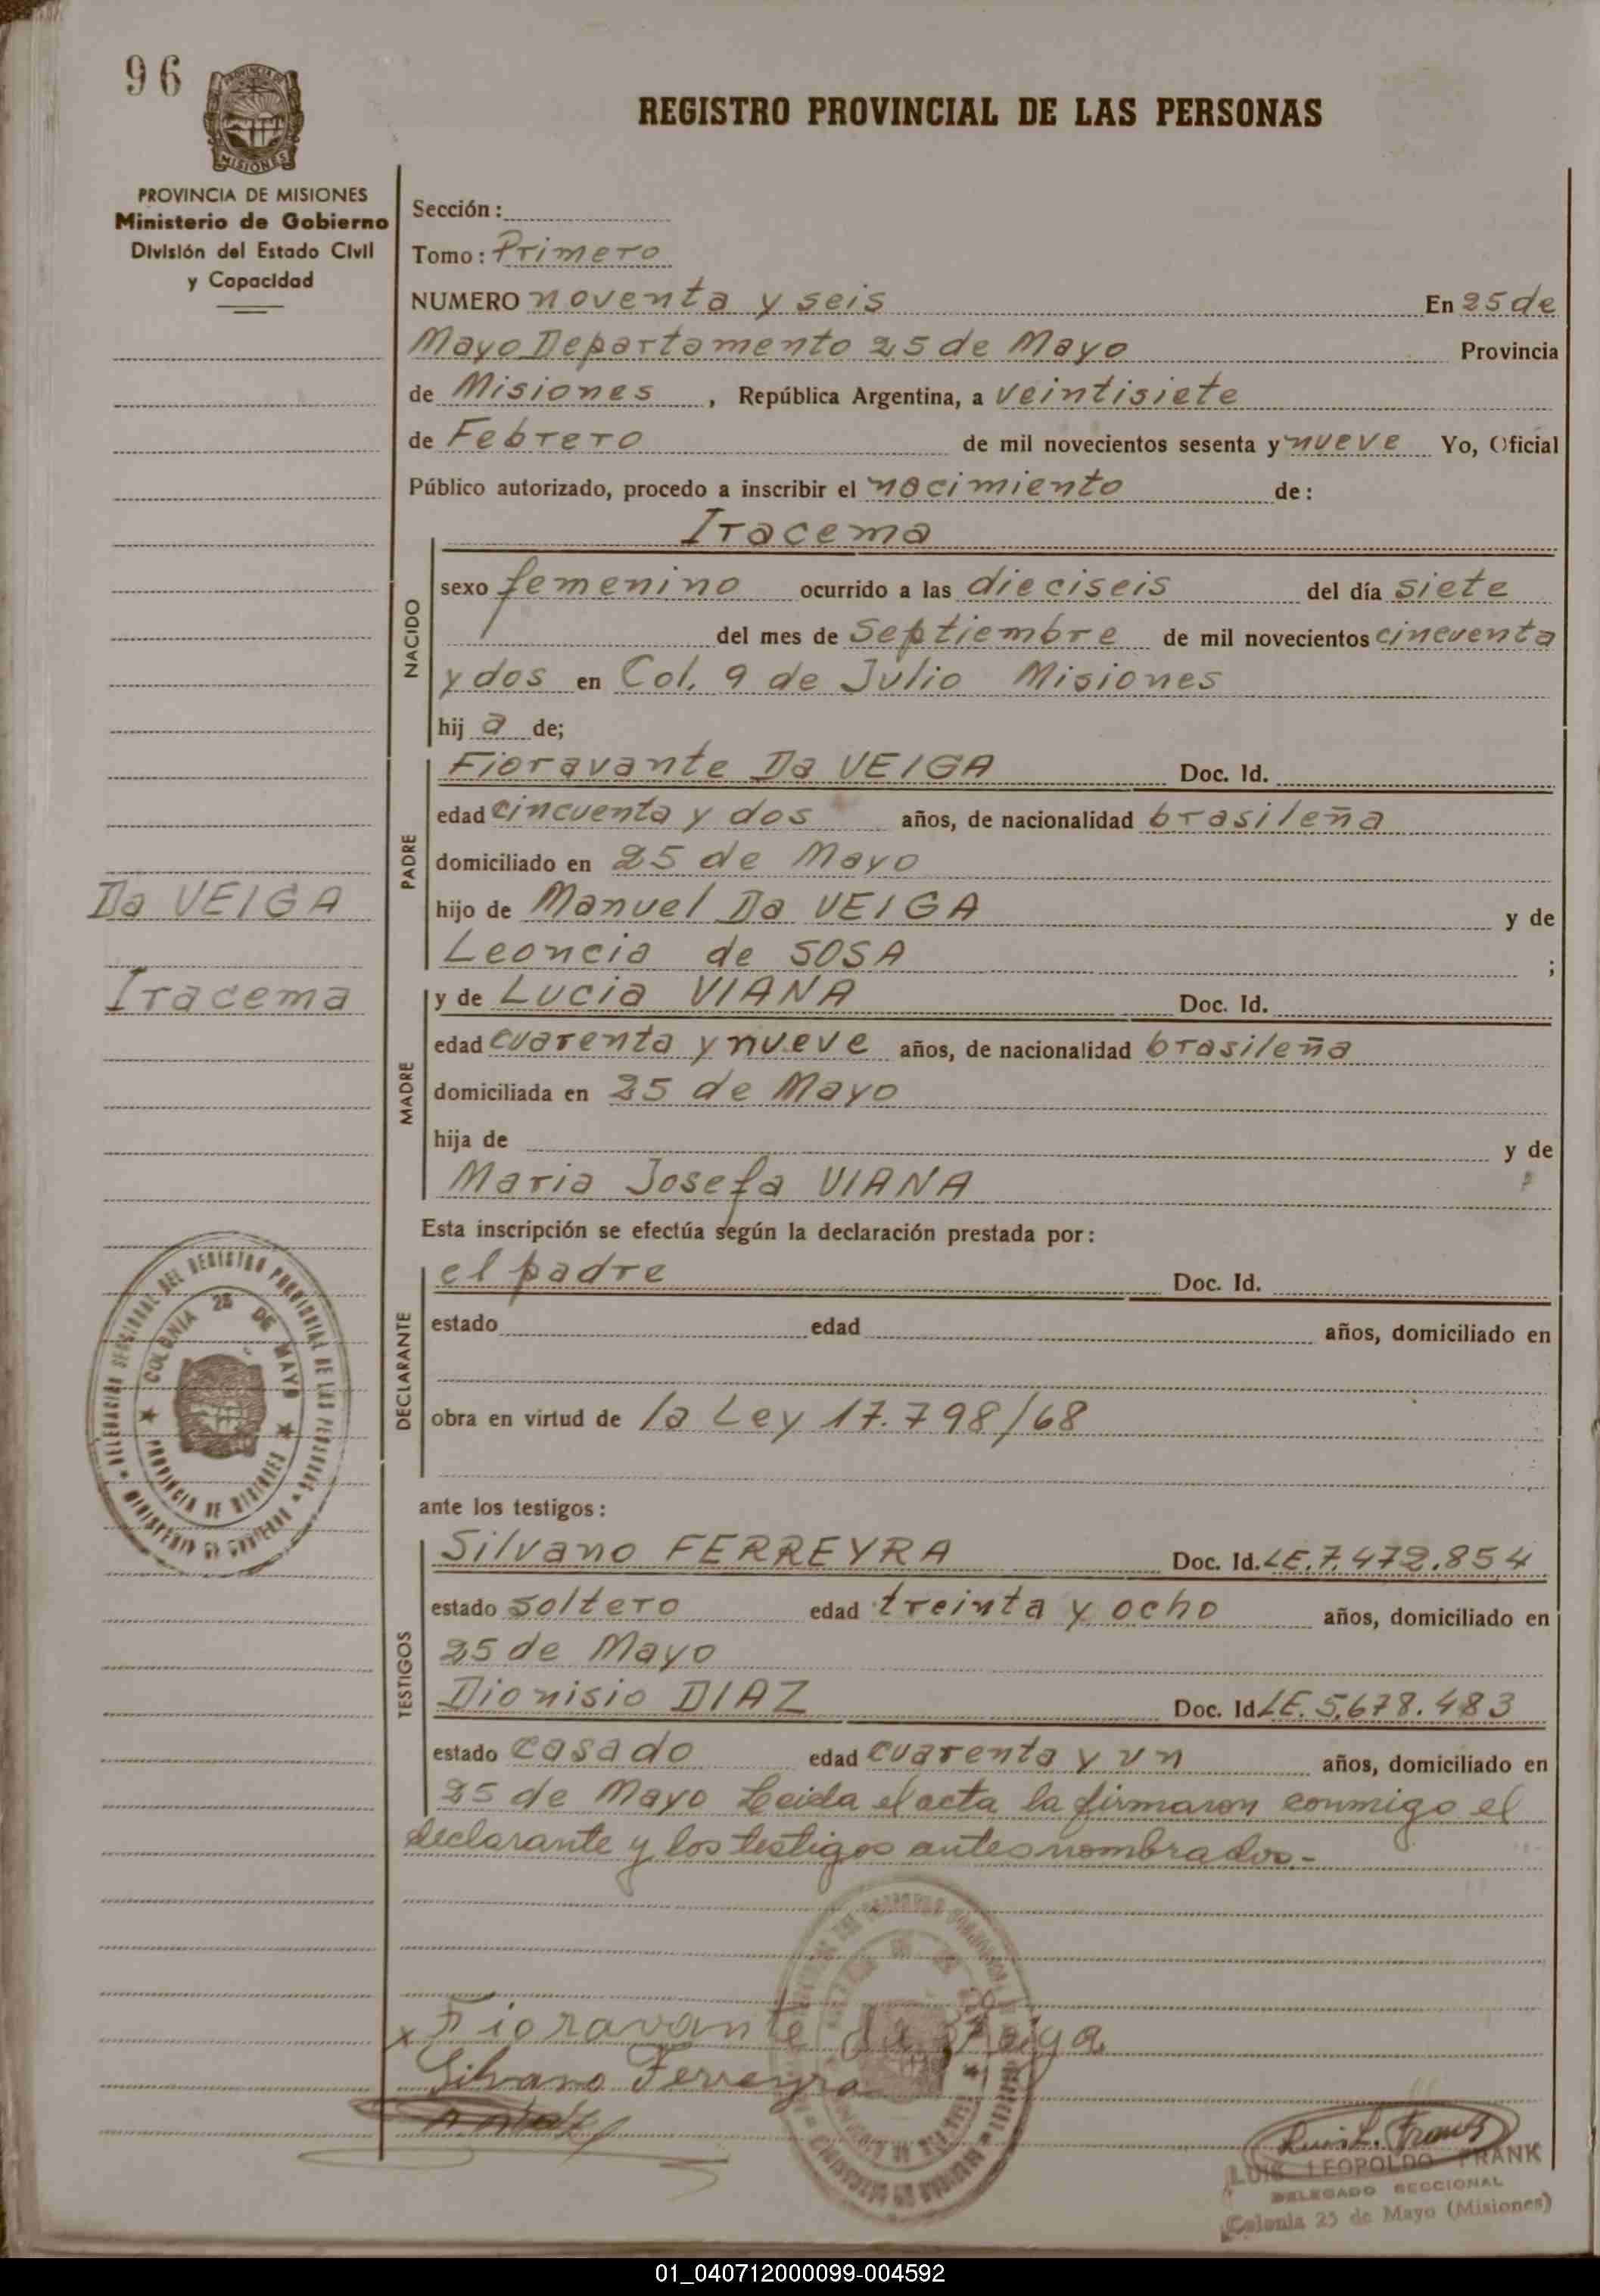 96
REGISTRO PROVINCIAL DE LAS PERSONAS
MISIONES
PROVINCIA DE MISIONES
Ministerio de Gobierno
División del Estado Civil
y Capacidad
Sección:
Tomo: Primero
NUMERO noventa y seis En 25 de
Mayo Departamento 25 de Mayo Provincia
de Misiones, República Argentina, a veintisiete
de Febrero de mil novecientos sesenta y nueve Yo, Oficial
Público autorizado, procedo a inscribir el nacimiento de:
NACIDO
Iracema
sexo femenino ocurrido a las dieciseis del día siete
del mes de Septiembre de mil novecientos cincuenta
y dos en Col. 9 de Julio Misiones
hij a de;
PADRE
Fioravante Da VEIGA Doc. Id.
edad cincuenta y dos años, de nacionalidad brasileña
domiciliado en 25 de Mayo
hijo de Manuel Da VEIGA y de
Leoncia de SOSA ;
Da VEIGA
Iracema
MADRE
y de Lucia VIANA Doc. Id.
edad cuarenta y nueve años, de nacionalidad brasileña
domiciliada en 25 de Mayo
hija de y de
Maria Josefa VIANA
Esta inscripción se efectúa según la declaración prestada por:
DECLARANTE
el padre Doc. Id.
estado edad años, domiciliado en
obra en virtud de la Ley 17.798/68
DELEGACION SECCIONAL DEL REGISTRO PROVINCIAL DE LAS PERSONAS
COLONIA 25 DE MAYO
PROVINCIA DE MISIONES
MINISTERIO DE GOBIERNO
ante los testigos:
TESTIGOS
Silvano FERREYRA Doc. Id. LE.7.472.854
estado soltero edad treinta y ocho años, domiciliado en
25 de Mayo
Dionisio DIAZ Doc. Id. LE. 5.678.483
estado casado edad cuarenta y un años, domiciliado en
25 de Mayo Leida el acta la firmaron conmigo el
declarante y los testigos antes nombrados.-
x Fioravante da Veiga
Silvano Ferreyra
Luis L. Frank
LUIS LEOPOLDO FRANK
DELEGADO SECCIONAL
Colonia 25 de Mayo (Misiones)
01_040712000099-004592